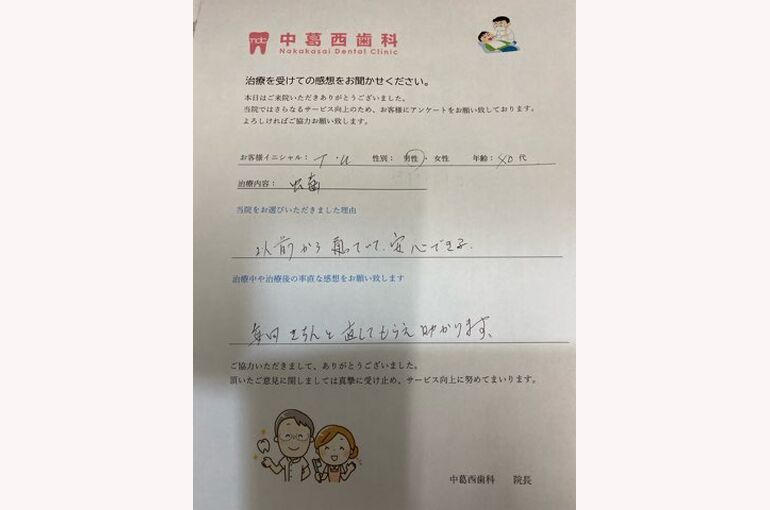 ndc 中葛西歯科
Nakakasai Dental Clinic
治療を受けての感想をお聞かせください。
本日はご来院いただきありがとうございました。
当院ではさらなるサービス向上のため、お客様にアンケートをお願い致しております。
よろしければご協力お願い致します。
お客様イニシャル： T・U 性別： 男性・女性 年齢： 代
治療内容： 虫歯
当院をお選びいただきました理由
以前から 安心できる.
治療中や治療後の率直な感想をお願い致します
毎回きちんと直してもらえ助かります、
ご協力いただきまして、ありがとうございました。
頂いたご意見に関しましては真摯に受け止め、サービス向上に努めてまいります。
中葛西歯科 院長